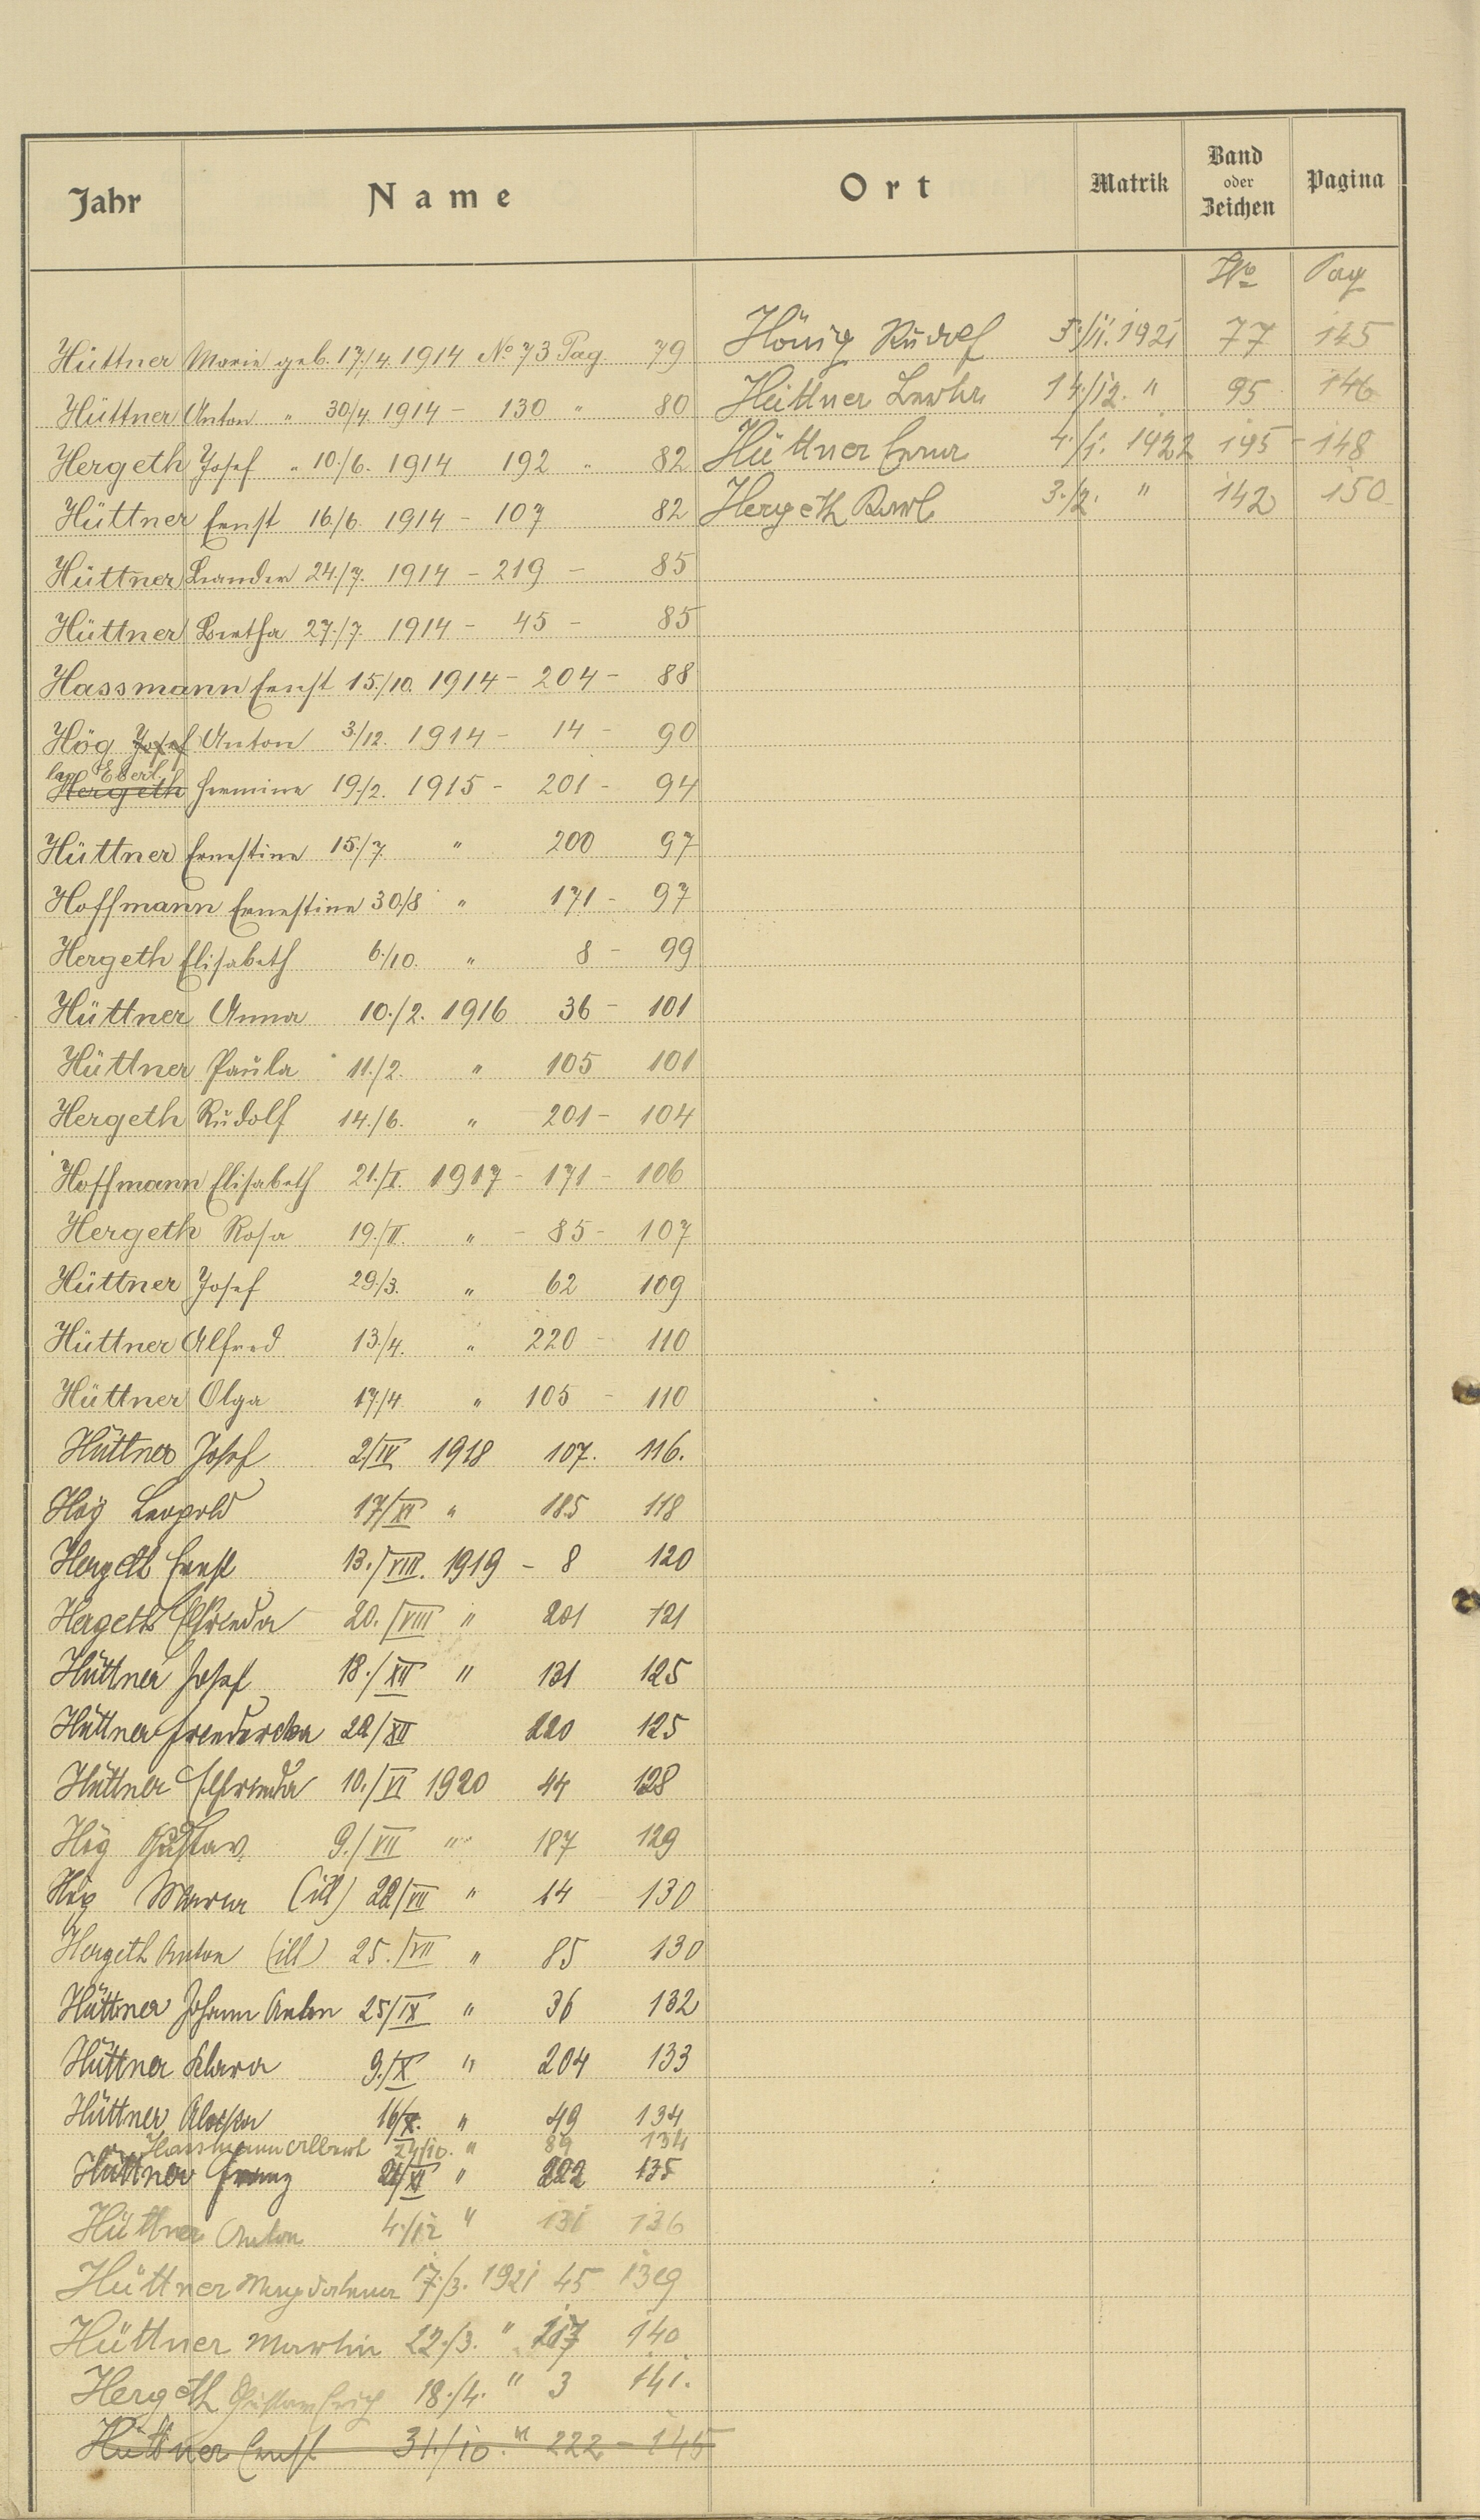 Jahr Name Ort Matrik Band oder Zeichen Pagina
No Pag
Hüttner Marie geb. 17./4. 1914 No 73 Pag. 79
Hüttner Anton " 30/4. 1914 - 130 " 80
Hergeth Josef " 10./6. 1914 192 " 82
Hüttner Ernst 16./6. 1914 - 107 82
Hüttner Leander 24./7. 1914 - 219 - 85
Hüttner Bertha 27./7. 1914 - 45 - 85
Hassmann Ernst 15./10. 1914 - 204 - 88
Hög Josef Anton 3./12. 1914 - 14 - 90
Eberl
Hergeth Hermine 19./2. 1915 - 201 - 94
Hüttner Ernestine 15./7. " 200 97
Hoffmann Ernestine 30./8 " 171 - 97
Hergeth Elisabeth 6./10. " 8 - 99
Hüttner Anna 10./2. 1916 36 - 101
Hüttner Paula 11./2. " 105 101
Hergeth Rudolf 14./6. " 201 - 104
Hoffmann Elisabeth 21./I. 1917 - 171 - 106
Hergeth Rosa 19./II. " - 85 - 107
Hüttner Josef 29./3. " 62 109
Hüttner Alfred 13./4. " 220 - 110
Hüttner Olga 17./4 " 105 - 110
Hüttner Josef 2./IV 1918 107. 116.
Hög Leopold 17/XI " 185 118
Hergeth Ernst 13./VIII. 1919 - 8 120
Hergeth Elfrieda 20./VIII " 201 121
Hüttner Josef 18./XII " 131 125
Hüttner 22/XII 220 125
Hüttner Elfrieda 10./VI 1920 44 128
Hög Gustav 9./VII " 187 129
Hög Maria (ill) 22/VII " 14 130
Hergeth Anton (ill) 25./VII " 85 130
Hüttner Johann Anton 25/IX " 36 132
Hüttner Klara 9./X " 204 133
Hüttner Aloisia 16/X. " 49 134
Hassmann Albert 24/10. " 89 134
Hüttner Franz 21/XI " 222 135
Hüttner Anton 4./12 " 131 136
Hüttner Magdalena 17./3. 1921 45 139
Hüttner Martin 22./3. " 217 140
Hergeth Gustav Erich 18./4. " 3 141.
Hüttner Ernst 31./10. " 222 - 145
Hönig Rudolf 5./11. 1921 77 145
Hüttner 14/12. " 95 146
Hüttner Erna 4./1. 1922 195 - 148
Hergeth Karl 3./2. " 142 150